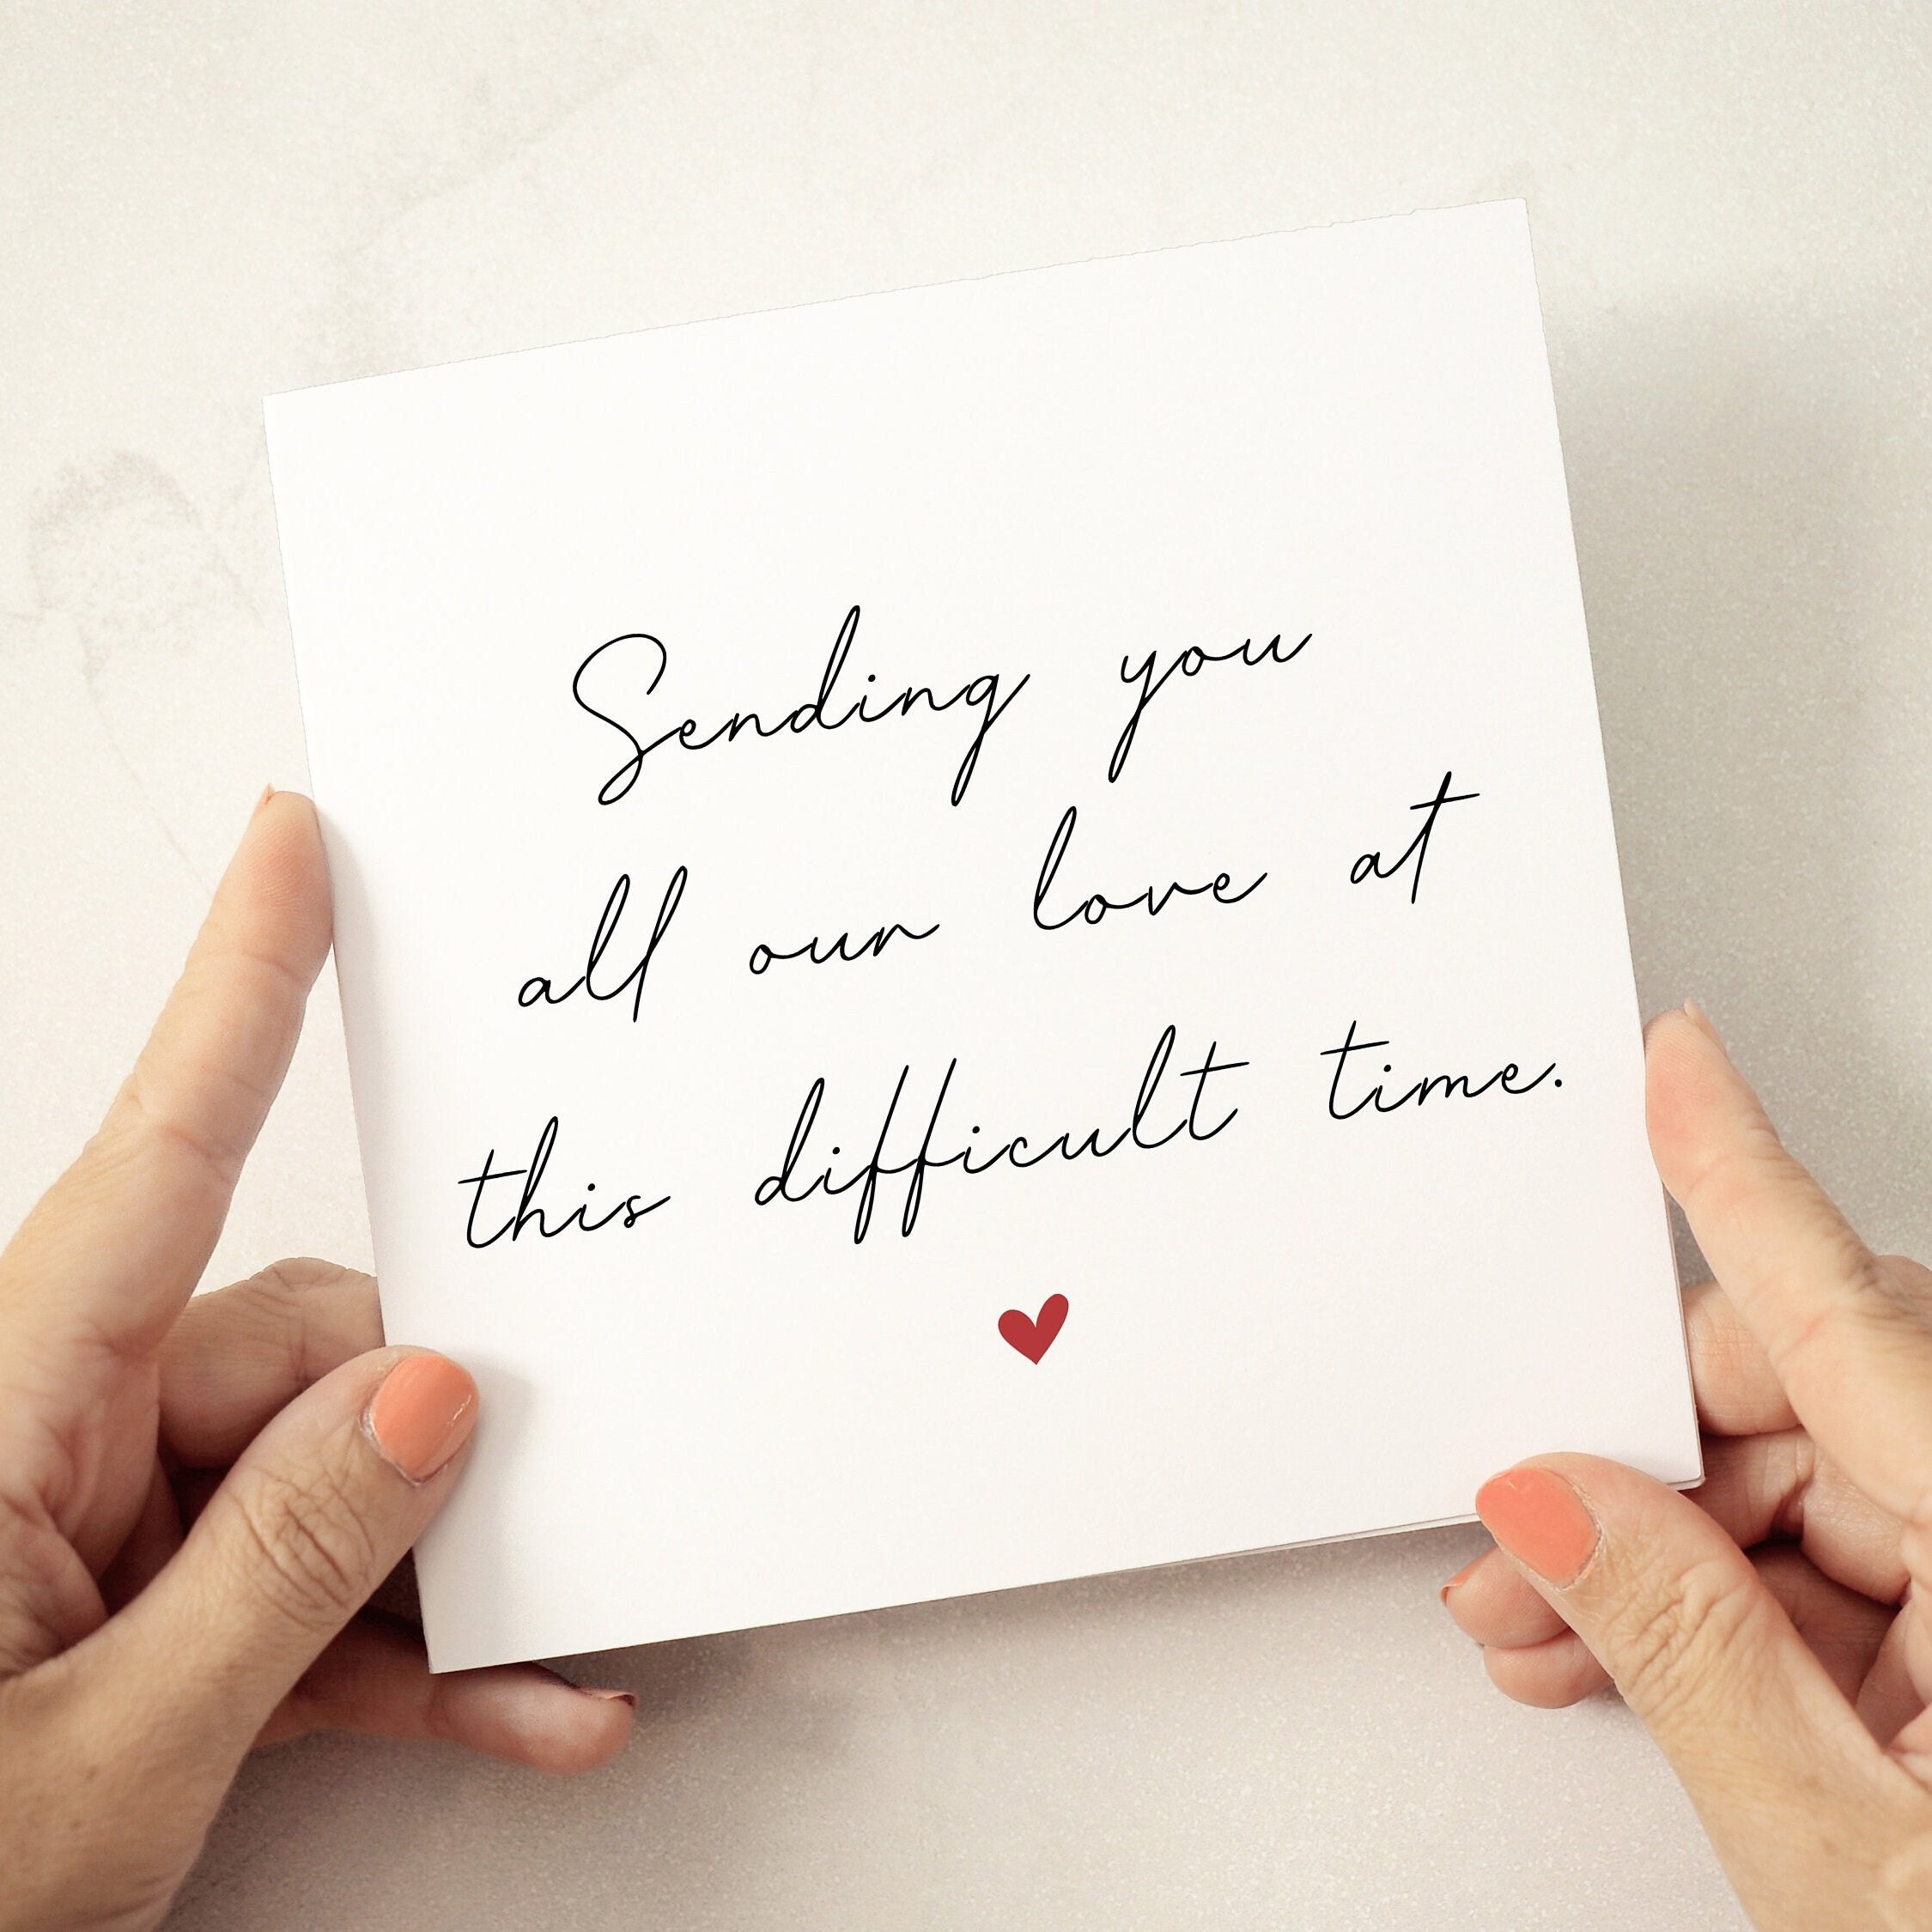 Sending you
all our love at
this difficult time.